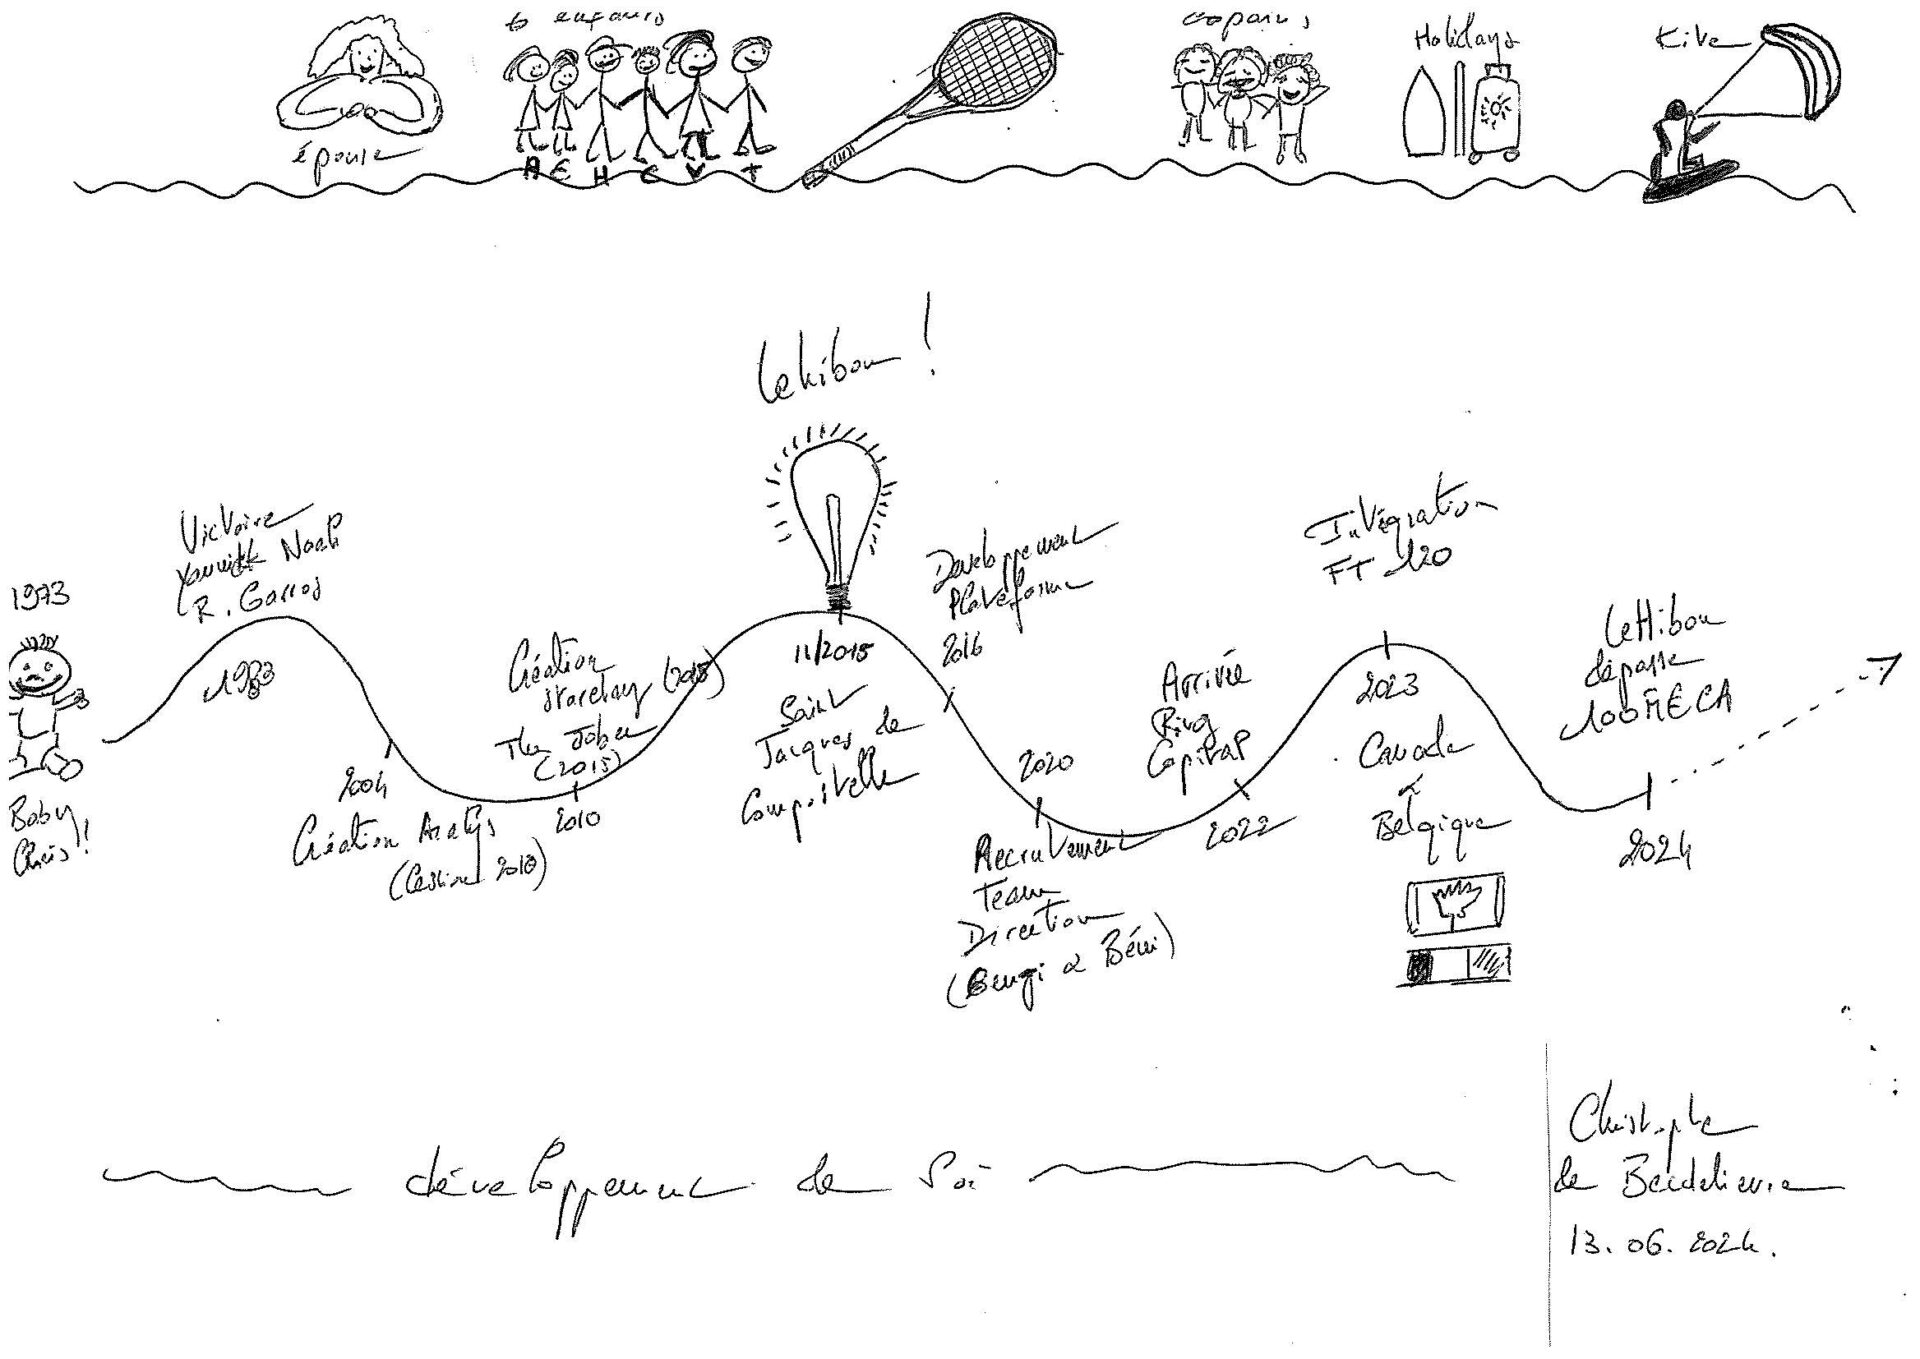 6 enfants
copains
Holidays
Kite
épouse
A E H C V T
Lekibou !
Victoire
Yannick Noah
R. Garros
1983
1973
Baby
Chris !
2004
Création Aratys
(Cession 2010)
Création
(2015)
The Jober
(2015)
2010
11/2015
Saint
Jacques de
Compostelle
Developpement
Plateforme
2016
2020
Recrutement
Team
Direction
Arrivée
Ring
Capital
2022
Intégration
FT 120
2023
Canada
&
Belgique
LeHibou
dépasse
100 M€ CA
2024
développement de soi
Christophe
de
13.06.2024.